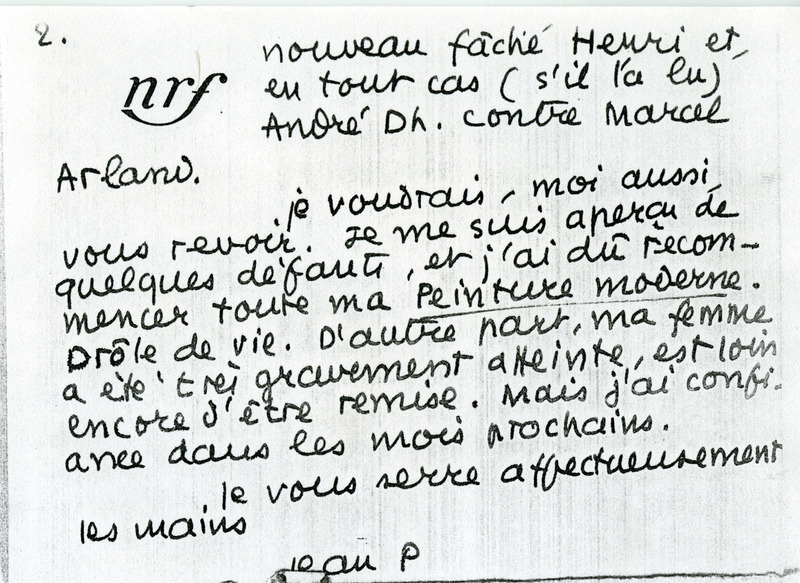 2.
nrf
nouveau fâché Henri et,
en tout cas (s'il l'a lu)
André Dh. contre Marcel
Arland.
je voudrais, moi aussi,
vous revoir. Je me suis aperçu de
quelques défauts, et j'ai dû recom-
mencer toute ma Peinture moderne.
Drôle de vie. D'autre part, ma femme
a été très gravement atteinte, est loin
encore d'être remise. Mais j'ai confi-
ance dans les mois prochains.
Je vous serre affectueusement
les mains
Jean P